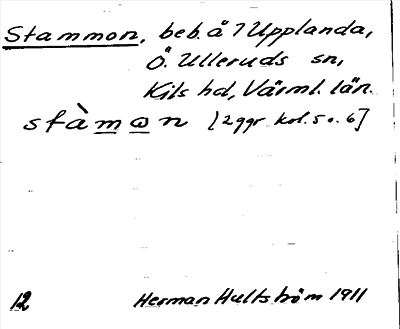 Stammon, beb. å 7 Upplanda,
Ö. Ulleruds sn,
Kils hd, Värml. län.
stàmon [2 ggr kol. 5 o. 6]
12 Herman Hultström 1911